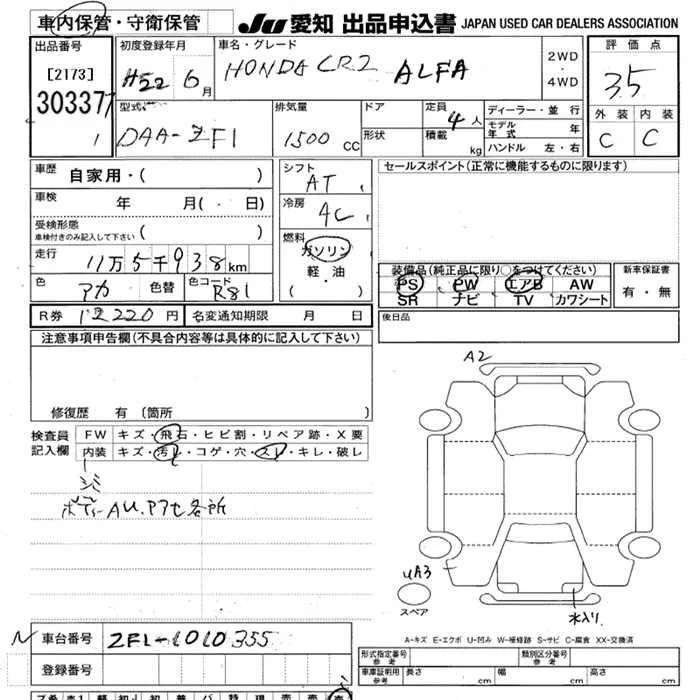 車内保管・守衛保管
JU 愛知 出品申込書 JAPAN USED CAR DEALERS ASSOCIATION
出品番号 初度登録年月 車名・グレード 2WD・4WD 評価点
[2173] H22 6月 HONDA CRZ ALFA 35
303377
1
型式 排気量 ドア 定員 4人 ディーラー・並行 外装 内装
DAA-ZF1 1500 CC 形状 積載 kg モデル年式 年 C C
ハンドル 左・右
車歴 自家用・( ) シフト AT セールスポイント(正常に機能するものに限ります)
車検 年 月(・ 日) 冷房 AC
受検形態 車検付きのみ記入して下さい ( )
燃料 ガソリン・軽・油・( )
走行 11万5千938km
装備品(純正品に限り○をつけてください) 新車保証書
色 アカ 色替 色コード R81
PS PW エアB AW 有・無
SR ナビ TV カワシート
R券 12220円 名変通知期限 月 日 後日品
注意事項申告欄(不具合内容等は具体的に記入して下さい)
修復歴 有(箇所
検査員記入欄 FW キズ・飛石・ヒビ割・リペア跡・X要
内装 キズ・汚レ・コゲ・穴・スレ・キレ・破レ
ボデーAU.アアセ各所
A2
UA3
スペア
水入り
A-キズ E-エクボ U-凹み W-補修跡 S-サビ C-腐食 XX-交換済
N 車台番号 ZF1-1010355
登録番号
形式指定番号 参考 類別区分番号 参考
車庫証明用 参考 長さ cm 幅 cm 高さ cm